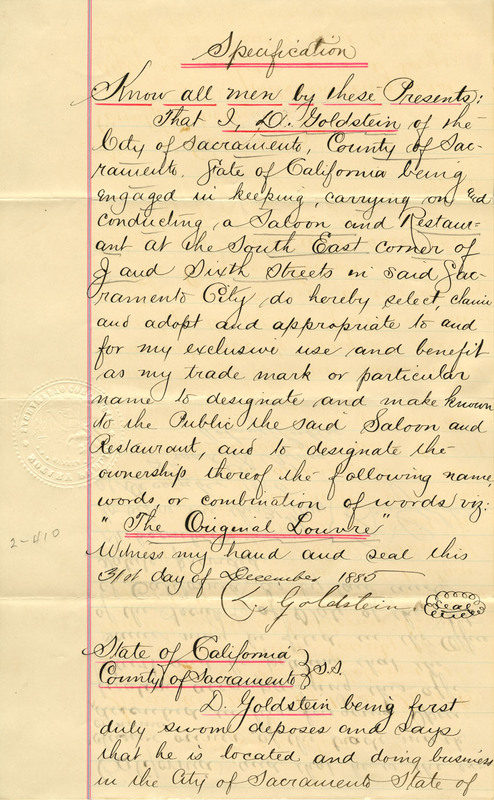 Specification
Know all men by these Presents:
That I, D. Goldstein of the
City of Sacramento, County of Sac-
ramento. State of California being
engaged in keeping, carrying on and
conducting, a Saloon and Restaur-
ant at the South East corner of
J and Sixth Streets in said Sac-
ramento City do hereby select, claim
and adopt and appropriate to and
for my exclusive use and benefit
as my trade mark or particular
name to designate and make known
to the Public the said Saloon and
Restaurant, and to designate the
ownership thereof the following name,
words or combination of words viz:
"The Original Louvre"
Witness my hand and seal this
31st day of December 1885
D. Goldstein. Seal
2-410
State of California
County of Sacramento } S.S.
D. Goldstein being first
duly sworn deposes and says
that he is located and doing business
in the City of Sacramento State of